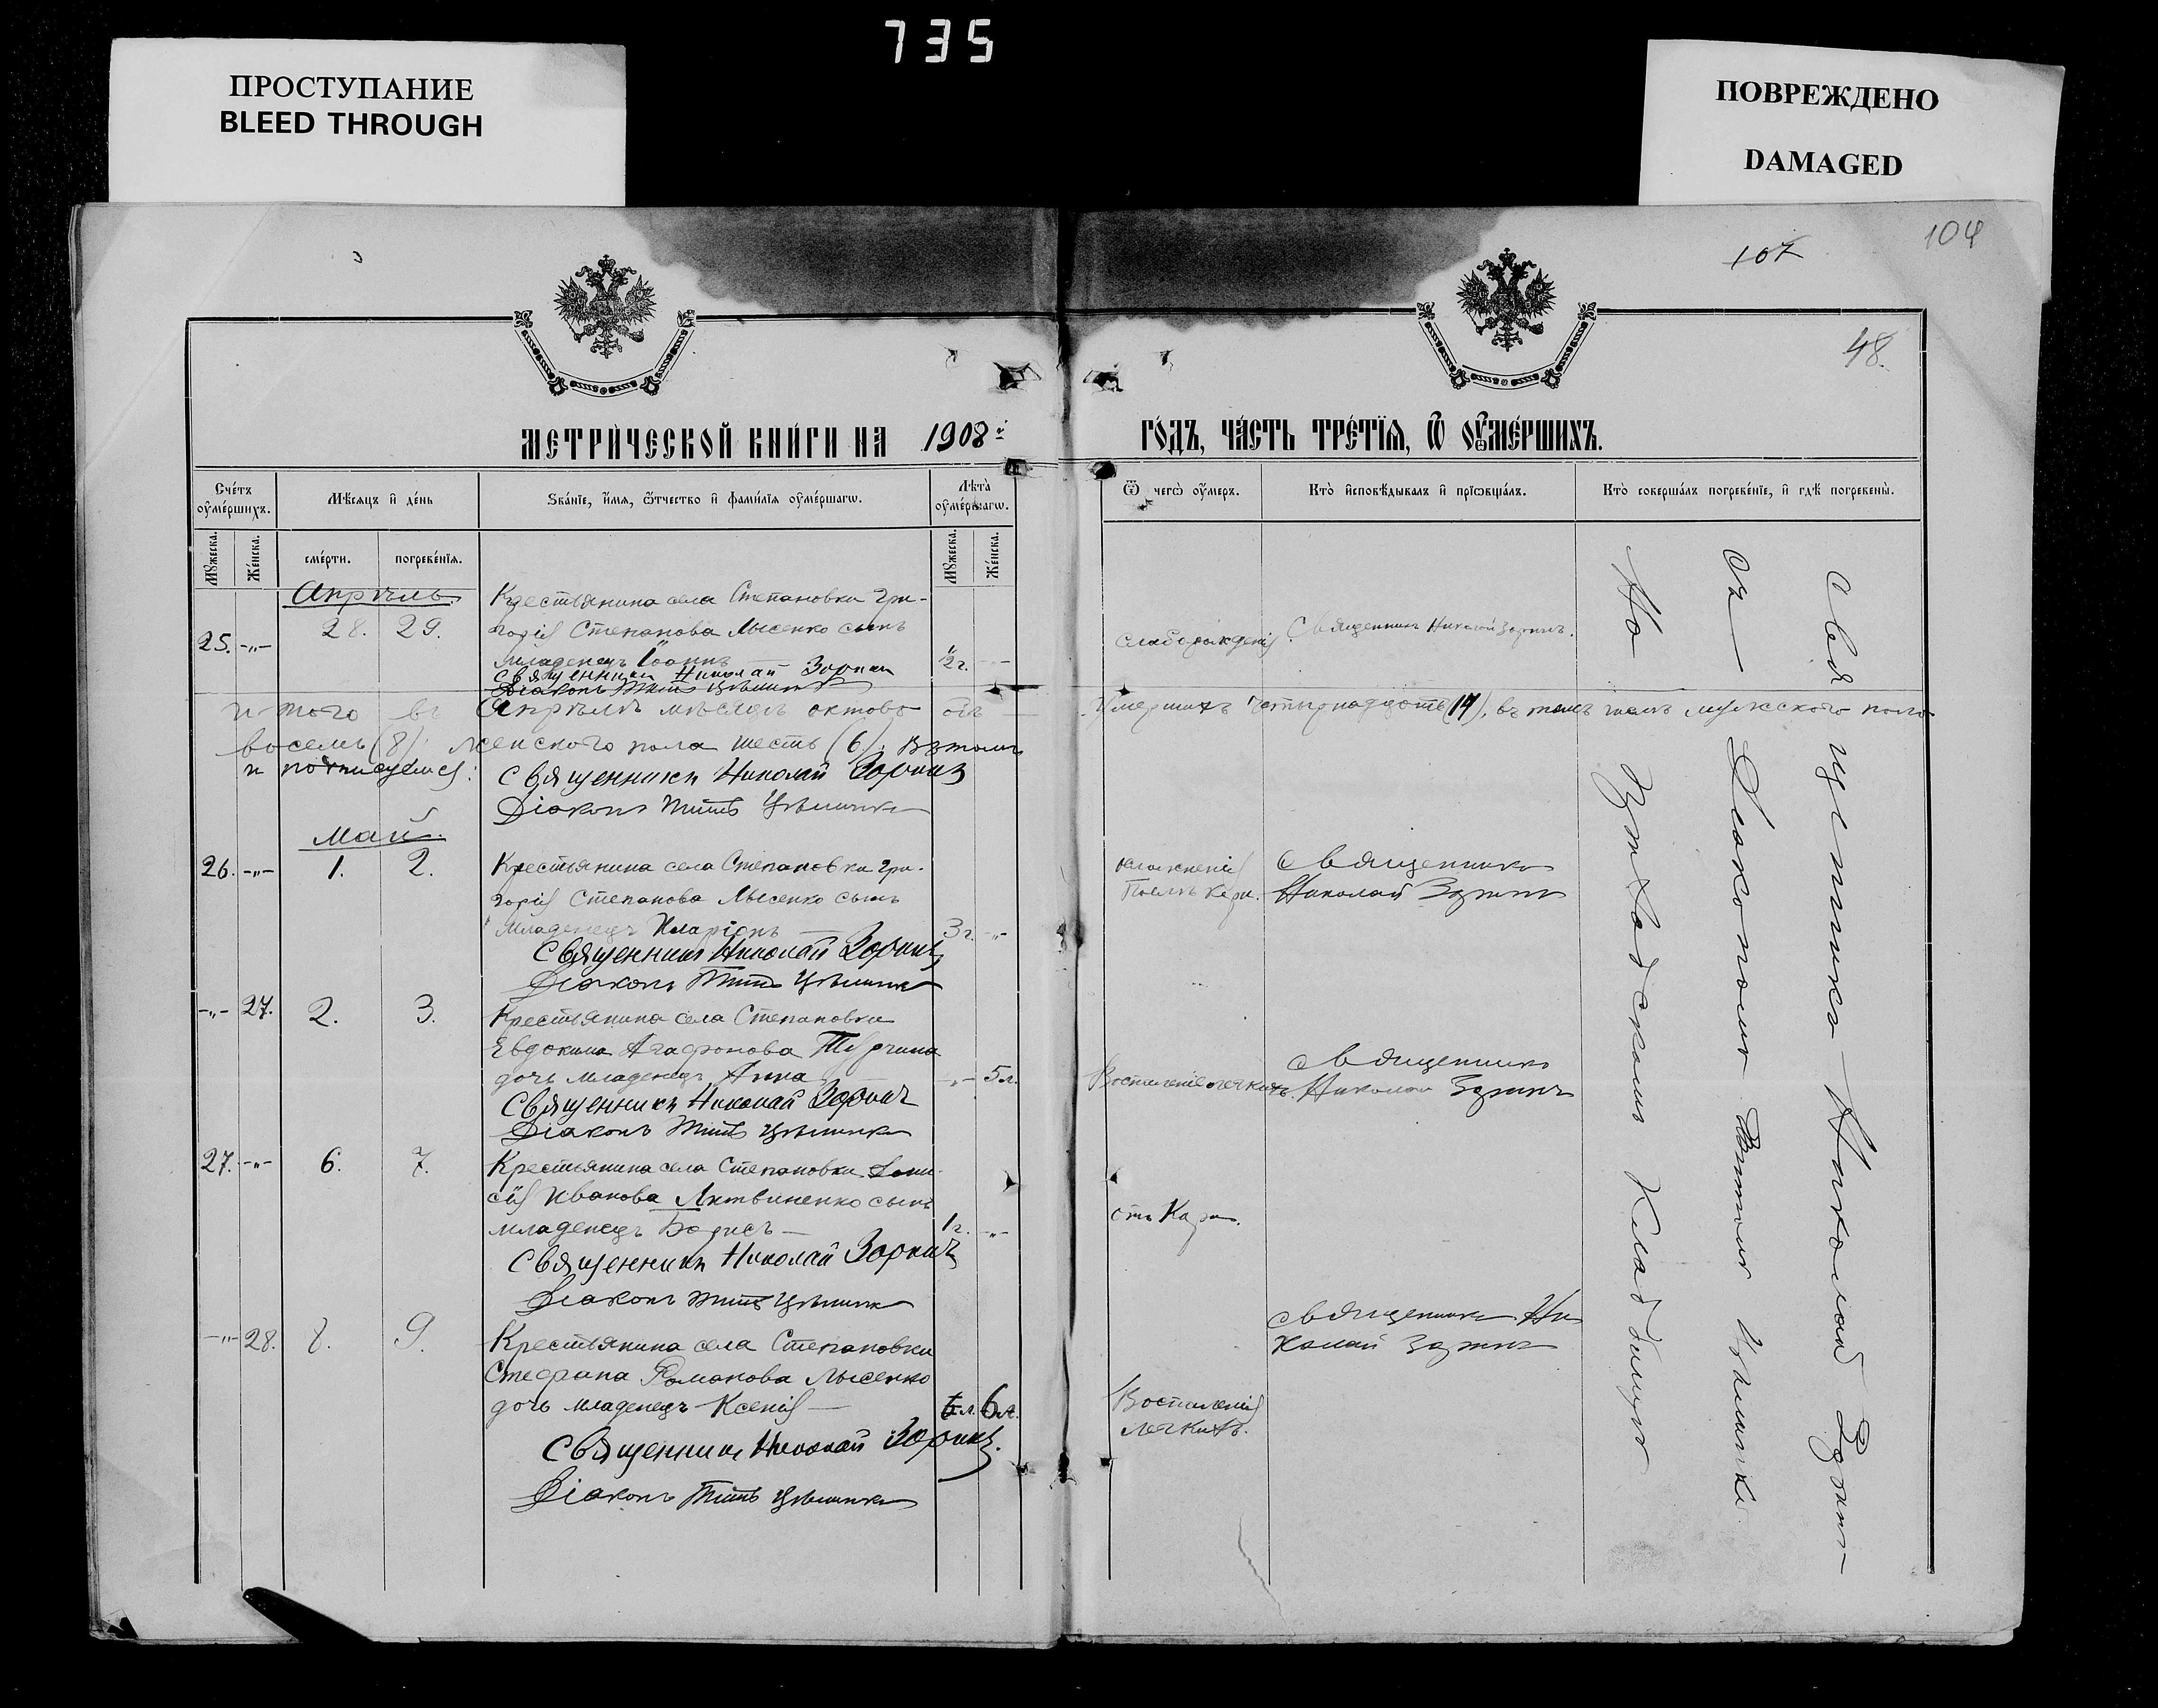 735
ПРОСТУПАНИЕ
BLEED THROUGH
ПОВРЕЖДЕНО
DAMAGED
104
107
48.
МЕТРИЧЕСКОЙ КНИГИ НА 1908й ГОДЪ, ЧАСТЬ ТРЕТІЯ, Ѡ ОУМЕРШИХЪ.
Счетъ оумершихъ.
Мѣсяцъ и день
Званіе, имя, отчество и фамилія оумершагѡ.
Лѣта оумершагѡ.
Ѿ чегѡ оумеръ.
Кто исповѣдывалъ и пріѡбщалъ.
Кто совершалъ погребеніе, и гдѣ погребены.
Мужеска.
Женска.
смерти.
погребенія.
Мужеска.
Женска.
Апрѣль.
25. -"- 28. 29. Крестьянина села Степановки Гри-
горія Степанова Лысенко сынъ
младенецъ Іоаннъ — 2г. -"-
слаборожденія Священникъ Николай Зоринъ.
Священникъ Николай Зоринъ
Діаконъ Титъ
Итого въ Апрѣлѣ мѣсяцѣ обоего пола умершихъ четырнадцать (14), въ томъ числѣ мужского пола
восемь (8), женского пола шесть (6). Въ томъ
и подписуемся:
Священникъ Николай Зоринъ
Діаконъ Титъ
Май.
26. -"- 1. 2. Крестьянина села Степановки Гри-
горія Степанова Лысенко сынъ
младенецъ Иларіонъ — 3г. -"-
осложненія
послѣ кори.
Священникъ
Николай Зоринъ
Священникъ Николай Зоринъ
Діаконъ Титъ
-"- 27. 2. 3. Крестьянина села Степановки
Евдокима Агафонова
дочь младенецъ Анна — -"- 5л.
Воспаленіе легкихъ.
Священникъ
Николай Зоринъ
Священникъ Николай Зоринъ
Діаконъ Титъ
27. -"- 6. 7. Крестьянина села Степановки
Иванова Литвиненко сынъ
младенецъ Борисъ — 1г. -"-
отъ Кори.
Священникъ Николай Зоринъ
Діаконъ Титъ
Священникъ Ни-
колай Зоринъ
-"- 28. 8. 9. Крестьянина села Степановки
Стефана Романова Лысенко
дочь младенецъ Ксенія — 6л.
Воспаленія
легкихъ.
Священникъ Николай Зоринъ.
Діаконъ Титъ
Священникъ Николай Зоринъ
съ Діакономъ Титомъ
На кладбищѣ